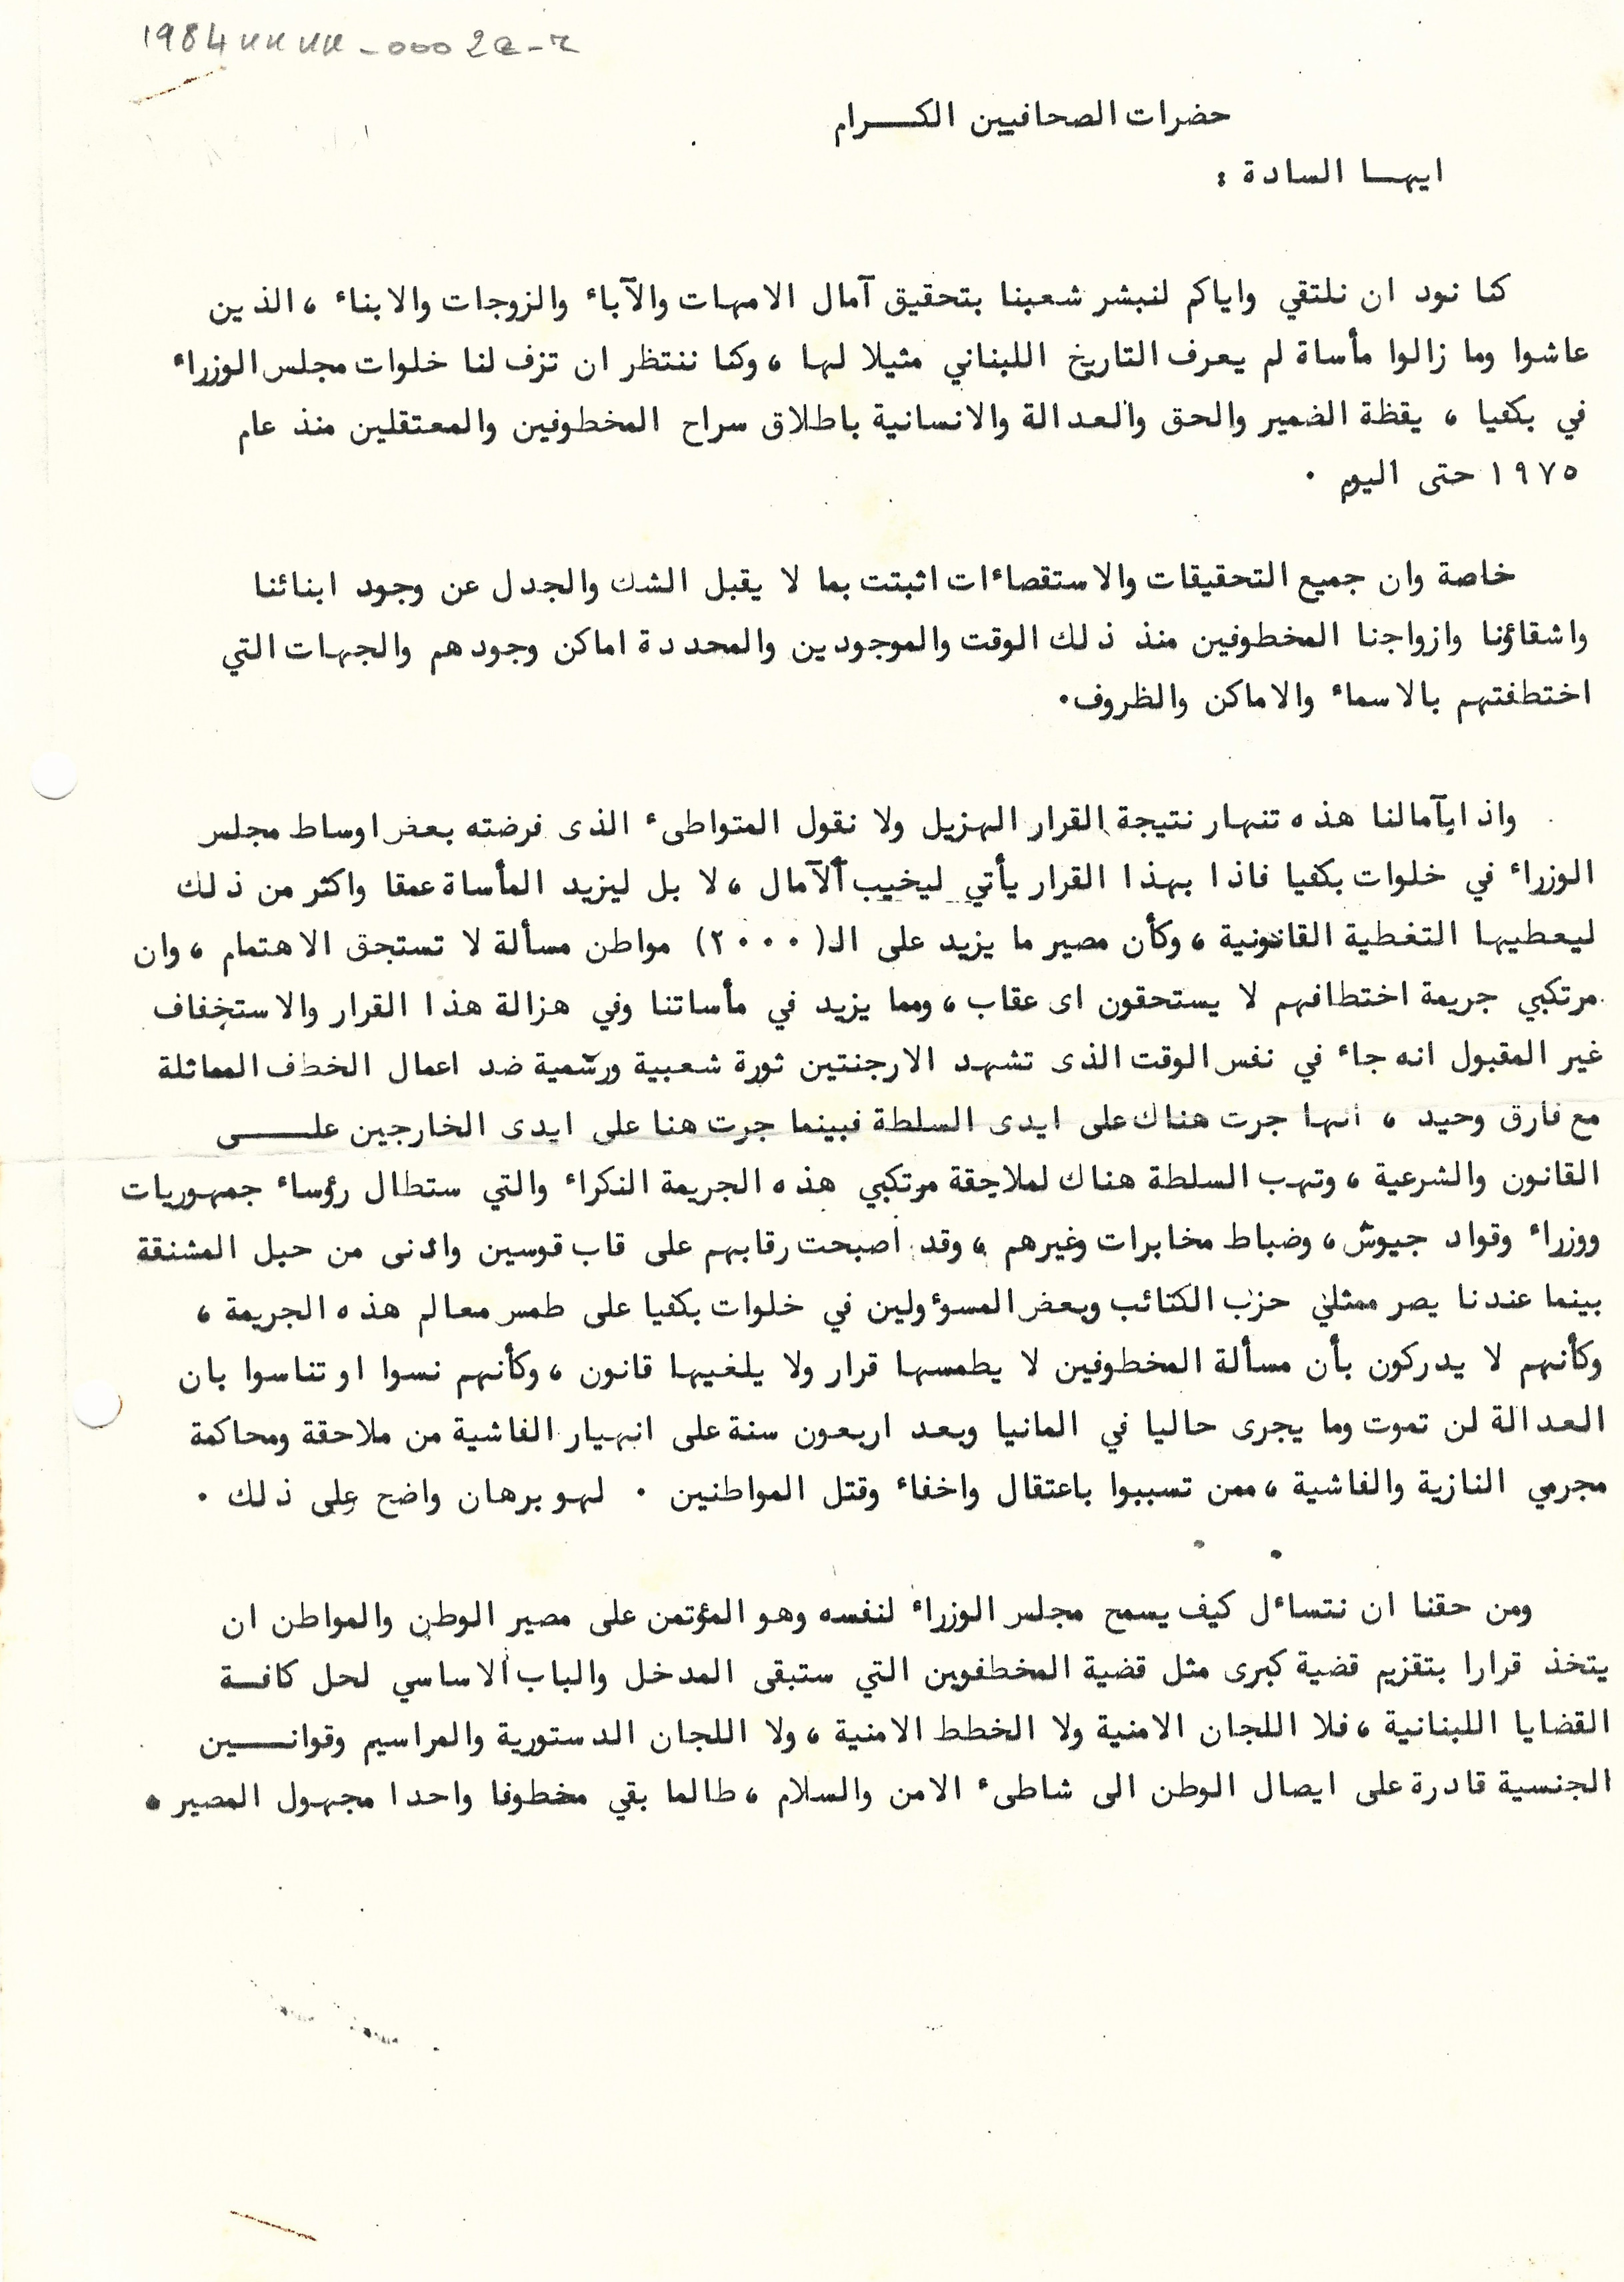 1984
حضرات الصحافيين الكـــرام
ايهـا السادة :
كنا نود ان نلتقي واياكم لنبشر شعبنا بتحقيق آمال الامهات والآباء والزوجات والابناء ، الذين
عاشوا وما زالوا مأساة لم يعرف التاريخ اللبناني مثيلا لها ، وكنا ننتظر ان تزف لنا خلوات مجلس الوزراء
في بكفيا ، يقظة الضمير والحق والعدالة والانسانية باطلاق سراح المخطوفين والمعتقلين منذ عام
١٩٧٥ حتى اليوم .
خاصة وان جميع التحقيقات والاستقصاءات اثبتت بما لا يقبل الشك والجدل عن وجود ابنائنا
واشقاؤنا وازواجنا المخطوفين منذ ذلك الوقت والموجودين والمحددة اماكن وجودهم والجهات التي
اختطفتهم بالاسماء والاماكن والظروف.
واذا بآمالنا هذه تنهار نتيجة القرار الهزيل ولا نقول المتواطىء الذى فرضته بعض اوساط مجلس
الوزراء في خلوات بكفيا فاذا بهذا القرار يأتي ليخيب الآمال ، لا بل ليزيد المأساة عمقا واكثر من ذلك
ليعطيها التغطية القانونية ، وكأن مصير ما يزيد على الـ(٢٠٠٠) مواطن مسألة لا تستحق الاهتمام ، وان
مرتكبي جريمة اختطافهم لا يستحقون اى عقاب ، ومما يزيد في مأساتنا وفي هزالة هذا القرار والاستخفاف
غير المقبول انه جاء في نفس الوقت الذى تشهد الارجنتين ثورة شعبية ورسمية ضد اعمال الخطف المماثلة
مع فارق وحيد ، انها جرت هناك على ايدى السلطة فبينما جرت هنا على ايدى الخارجين علـــى
القانون والشرعية ، وتهب السلطة هناك لملاحقة مرتكبي هذه الجريمة النكراء والتي ستطال رؤساء جمهوريات
ووزراء وقواد جيوش ، وضباط مخابرات وغيرهم ، وقد اصبحت رقابهم على قاب قوسين وادنى من حبل المشنقة
بينما عندنا يصر ممثلي حزب الكتائب وبعض المسؤولين في خلوات بكفيا على طمس معالم هذه الجريمة ،
وكأنهم لا يدركون بأن مسألة المخطوفين لا يطمسها قرار ولا يلغيها قانون ، وكأنهم نسوا او تناسوا بان
العدالة لن تموت وما يجرى حاليا في المانيا وبعد اربعون سنة على انهيار الفاشية من ملاحقة ومحاكمة
مجرمي النازية والفاشية ، ممن تسببوا باعتقال واخفاء وقتل المواطنين . لهو برهان واضح على ذلك .
ومن حقنا ان نتساءل كيف يسمح مجلس الوزراء لنفسه وهو المؤتمن على مصير الوطن والمواطن ان
يتخذ قرارا بتقزيم قضية كبرى مثل قضية المخطفوين التي ستبقى المدخل والباب الاساسي لحل كافـة
القضايا اللبنانية ، فلا اللجان الامنية ولا الخطط الامنية ، ولا اللجان الدستورية والمراسيم وقوانـــين
الجنسية قادرة على ايصال الوطن الى شاطىء الامن والسلام ، طالما بقي مخطوفا واحدا مجهول المصير .